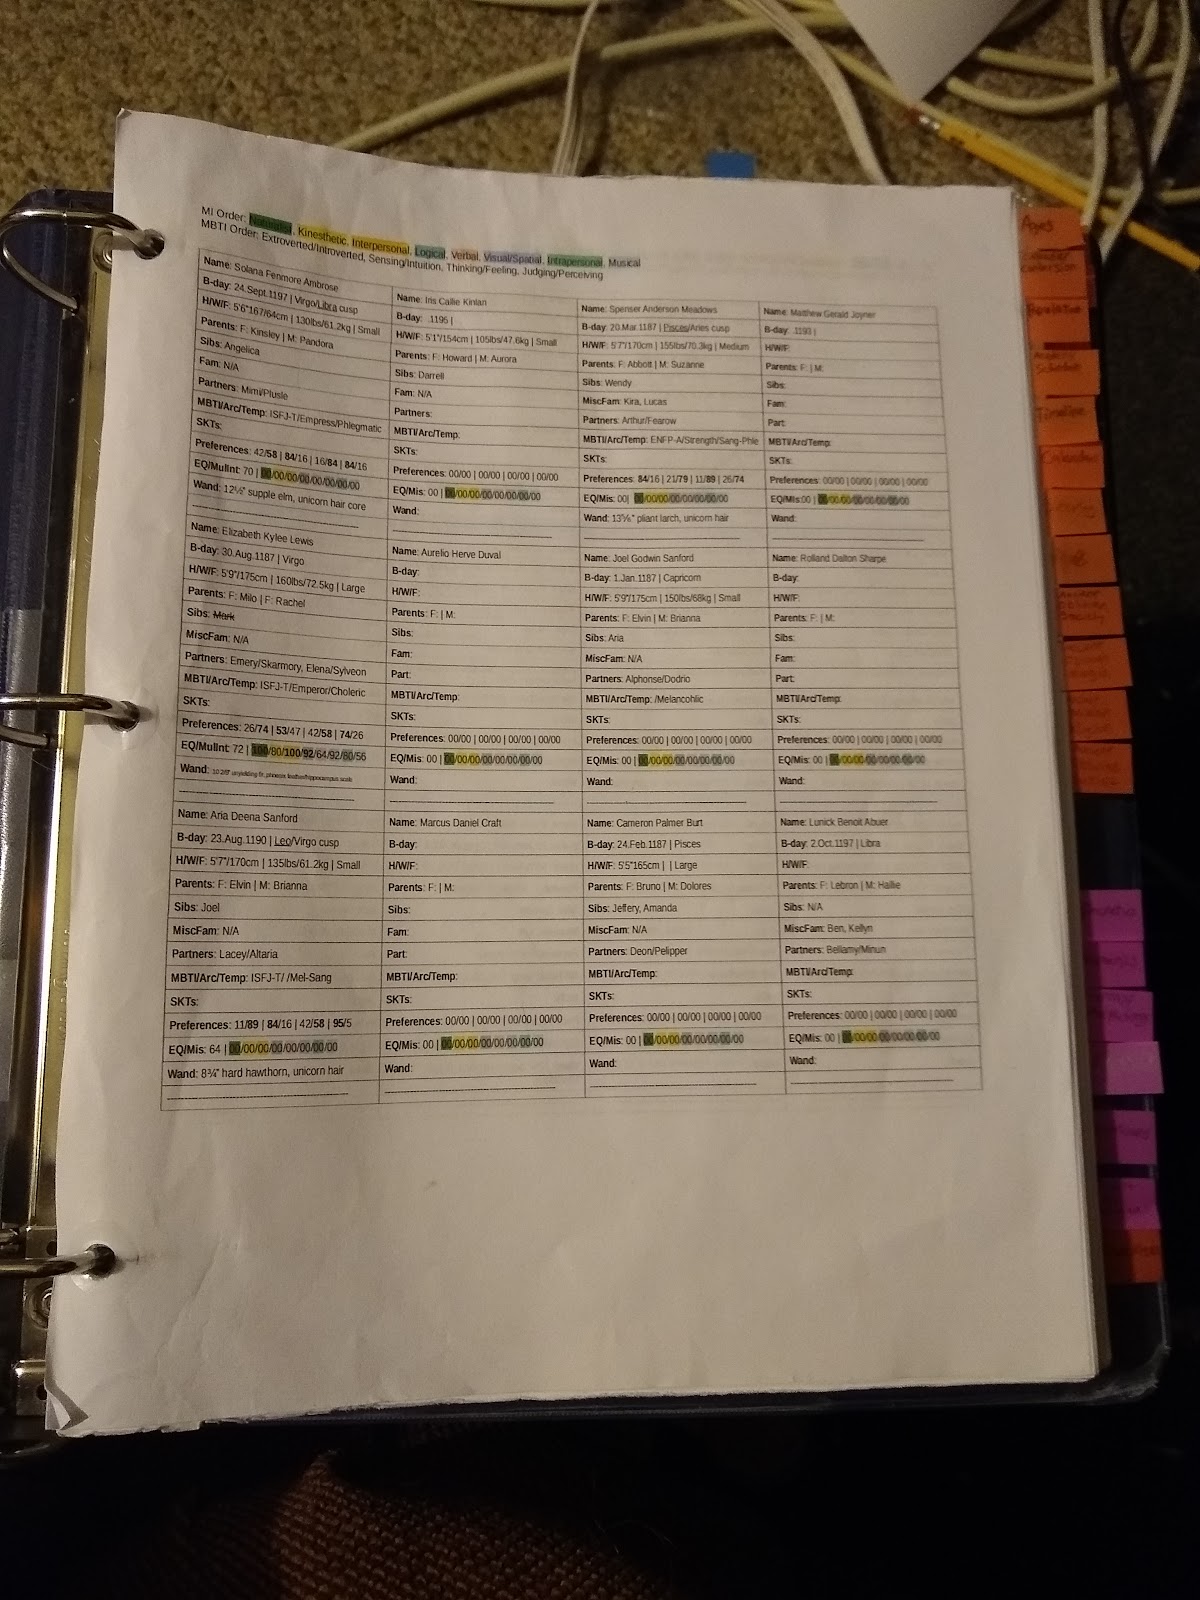 MI Order: Naturalist, Kinesthetic, Interpersonal, Logical, Verbal, Visual/Spatial, Intrapersonal, Musical
MBTI Order: Extroverted/Introverted, Sensing/Intuition, Thinking/Feeling, Judging/Perceiving
Name: Solana Fenmore Ambrose
B-day: 24.Sept.1197 | Virgo/Libra cusp
H/W/F: 5'6"167/64cm | 130lbs/61.2kg | Small
Parents: F: Kinsley | M: Pandora
Sibs: Angelica
Fam: N/A
Partners: Mimi/Plusle
MBTI/Arc/Temp: ISFJ-T/Empress/Phlegmatic
SKTs:
Preferences: 42/58 | 84/16 | 16/84 | 84/16
EQ/MulInt: 70 | 00/00/00/00/00/00/00/00
Wand: 12½" supple elm, unicorn hair core
Name: Iris Callie Kinlan
B-day: .1195 |
H/W/F: 5'1"/154cm | 105lbs/47.6kg | Small
Parents: F: Howard | M: Aurora
Sibs: Darrell
Fam: N/A
Partners:
MBTI/Arc/Temp:
SKTs:
Preferences: 00/00 | 00/00 | 00/00 | 00/00
EQ/Mis: 00 | 00/00/00/00/00/00/00/00
Wand:
Name: Spenser Anderson Meadows
B-day: 20.Mar.1187 | Pisces/Aries cusp
H/W/F: 5'7"/170cm | 155lbs/70.3kg | Medium
Parents: F: Abbott | M: Suzanne
Sibs: Wendy
MiscFam: Kira, Lucas
Partners: Arthur/Fearow
MBTI/Arc/Temp: ENFP-A/Strength/Sang-Phle
SKTs:
Preferences: 84/16 | 21/79 | 11/89 | 26/74
EQ/Mis: 00| 00/00/00/00/00/00/00/00
Wand: pliant larch, unicorn hair
Name: Matthew Gerald Joyner
B-day: .1193 |
H/W/F:
Parents: F: | M:
Sibs:
Fam:
Part:
MBTI/Arc/Temp:
SKTs:
Preferences: 00/00 | 00/00 | 00/00 | 00/00
EQ/Mis:00 | 00/00/00/00/00/00/00/00
Wand:
Name: Elizabeth Kylee Lewis
B-day: 30.Aug.1187 | Virgo
H/W/F: 5'9"/175cm | 160lbs/72.5kg | Large
Parents: F: Milo | F: Rachel
Sibs: Mark
MiscFam: N/A
Partners: Emery/Skarmory, Elena/Sylveon
MBTI/Arc/Temp: ISFJ-T/Emperor/Choleric
SKTs:
Preferences: 26/74 | 53/47 | 42/58 | 74/26
EQ/MulInt: 72 | 100/80/100/92/64/92/80/56
Wand: unyielding fir, phoenix feather/hippocampus scale
Name: Aurelio Herve Duval
B-day:
H/W/F:
Parents: F: | M:
Sibs:
Fam:
Part:
MBTI/Arc/Temp:
SKTs:
Preferences: 00/00 | 00/00 | 00/00 | 00/00
EQ/Mis: 00 | 00/00/00/00/00/00/00/00
Wand:
Name: Joel Godwin Sanford
B-day: 1.Jan.1187 | Capricorn
H/W/F: 5'9"/175cm | 150lbs/68kg | Small
Parents: F: Elvin | M: Brianna
Sibs: Aria
MiscFam: N/A
Partners: Alphonse/Dodrio
MBTI/Arc/Temp: /Melancohlic
SKTs:
Preferences: 00/00 | 00/00 | 00/00 | 00/00
EQ/Mis: 00 | 00/00/00/00/00/00/00/00
Wand:
Name: Rolland Dalton Sharpe
B-day:
H/W/F:
Parents: F: | M:
Sibs:
Fam:
Part:
MBTI/Arc/Temp:
SKTs:
Preferences: 00/00 | 00/00 | 00/00 | 00/00
EQ/Mis: 00 | 00/00/00/00/00/00/00/00
Wand:
Name: Aria Deena Sanford
B-day: 23.Aug.1190 | Leo/Virgo cusp
H/W/F: 5'7"/170cm | 135lbs/61.2kg | Small
Parents: F: Elvin | M: Brianna
Sibs: Joel
MiscFam: N/A
Partners: Lacey/Altaria
MBTI/Arc/Temp: ISFJ-T/ /Mel-Sang
SKTs:
Preferences: 11/89 | 84/16 | 42/58 | 95/5
EQ/Mis: 64 | 00/00/00/00/00/00/00/00
Wand: 8¾" hard hawthorn, unicorn hair
Name: Marcus Daniel Craft
B-day:
H/W/F:
Parents: F: | M:
Sibs:
Fam:
Part:
MBTI/Arc/Temp:
SKTs:
Preferences: 00/00 | 00/00 | 00/00 | 00/00
EQ/Mis: 00 | 00/00/00/00/00/00/00/00
Wand:
Name: Cameron Palmer Burt
B-day: 24.Feb.1187 | Pisces
H/W/F: 5'5"165cm | | Large
Parents: F: Bruno | M: Dolores
Sibs: Jeffery, Amanda
MiscFam: N/A
Partners: Deon/Pelipper
MBTI/Arc/Temp:
SKTs:
Preferences: 00/00 | 00/00 | 00/00 | 00/00
EQ/Mis: 00 | 00/00/00/00/00/00/00/00
Wand:
Name: Lunick Benoit Abuer
B-day: 2.Oct.1197 | Libra
H/W/F:
Parents: F: Lebron | M: Hallie
Sibs: N/A
MiscFam: Ben, Kellyn
Partners: Bellamy/Minun
MBTI/Arc/Temp:
SKTs:
Preferences: 00/00 | 00/00 | 00/00 | 00/00
EQ/Mis: 00 | 00/00/00/00/00/00/00/00
Wand:
Ages
Timeline
Calendar